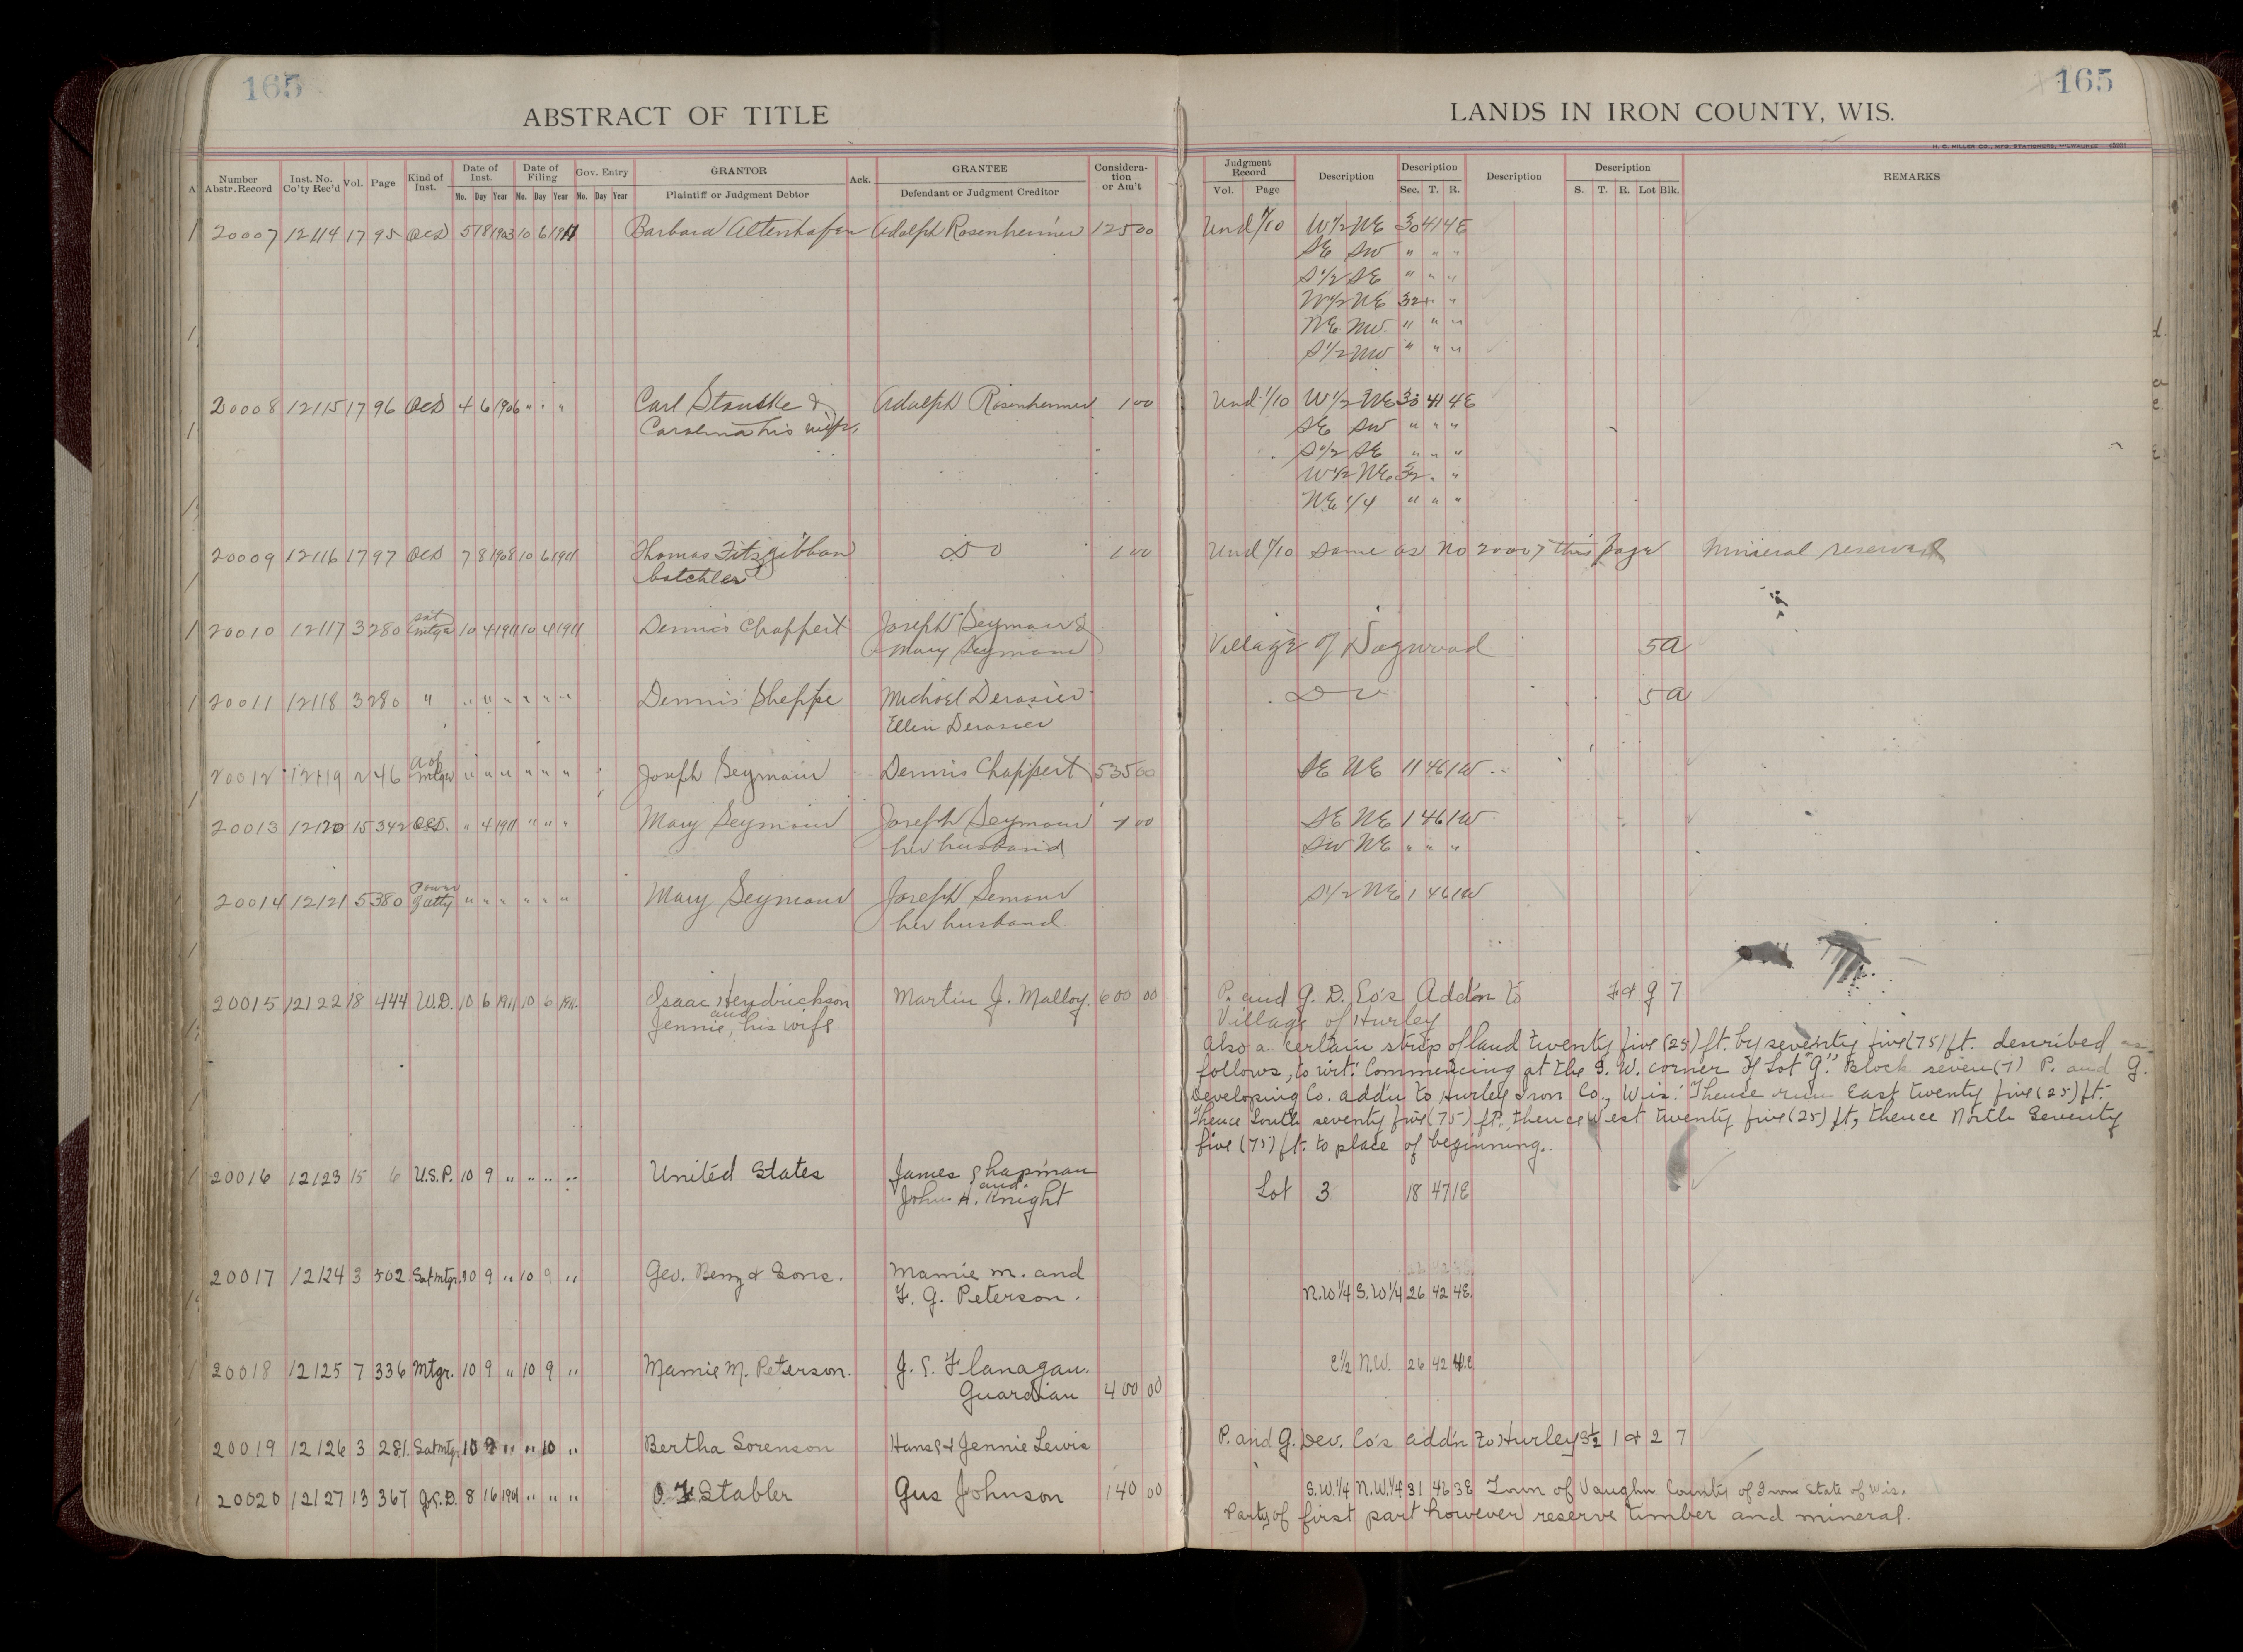 165
165
ABSTRACT OF TITLE
LANDS IN IRON COUNTY, WIS.
H. C. MILLER CO., MFG. STATIONERS, MILWAUKEE
Number Abstr. Record Inst. No. Co'ty Rec'd Vol. Page Kind of Inst. Date of Inst. Mo. Day Year Date of Filing Mo. Day Year Gov. Entry Mo. Day Year GRANTOR Plaintiff or Judgment Debtor Ack. GRANTEE Defendant or Judgment Creditor Considera-tion or Am't Judgment Record Vol. Page Description Description Sec. T. R. Description Description S. T. R. Lot Blk. REMARKS
20007 12114 17 95 QCD 5 18 1903 10 6 1911 Barbara Altenhofen Adolph Rosenheimer 125 00 Und 1/10 W 1/2 NE 30 41 4E
SE SW " " "
S 1/2 SE " " "
W 1/2 NE 32 " "
NE NW " " "
S 1/2 NW " " "
20008 12115 17 96 QCD 4 6 1906 " " " Carl Stautke & Adolph Rosenheimer 1 00 Und 1/10 W 1/2 NE 30 41 4E
Carolina his wife, SE SW " " "
S 1/2 SE " " "
W 1/2 NE 32 " "
NE 1/4 " " "
20009 12116 17 97 QCD 7 8 1908 10 6 1911 Thomas Fitzgibbon DO 1 00 Und 1/10 same as No 20007 this page Mineral reserved
batchler
20010 12117 3 280 Sat mtge 10 4 1911 10 4 1911 Dennis Chappert Joseph Seymour &
Mary Seymour Village of Dogwood 5 a
20011 12118 3 280 " " " " " " " Dennis Sheppe Michael Derasier DO 5 a
Ellen Derasier
20012 12119 2 46 a of mtge " " " " " " Joseph Seymour Dennis Chappert 535 00 SE NE 11 46 1W
20013 12120 15 342 QCD. " 4 1911 " " " Mary Seymour Joseph Seymour 1 00 SE NE 1 46 1W
her husband SW NE " " "
20014 12121 5 380 Power of atty " " " " " " Mary Seymour Joseph Semour S 1/2 NE 1 46 1W
her husband
20015 12122 18 444 W.D. 10 6 1911 10 6 1911. Isaac Hendrickson Martin J. Malloy. 600 00 P. and G. D. Co's Add'n to F & G 7
and
Jennie, his wife Village of Hurley
Also a certain strip of land twenty five (25) ft. by seventy five (75) ft. described as
follows, to wit: Commencing at the S. W. corner of Lot "G" Block seven (7) P. and G.
Developing Co. add'n to Hurley Iron Co., Wis. Thence run East twenty five (25) ft.
Thence South seventy five (75) ft. thence West twenty five (25) ft, thence North Seventy
five (75) ft. to place of beginning.
20016 12123 15 6 U.S.P. 10 9 " " " " United States James Chapman
and
John H. Knight Lot 3 18 47 1E
20017 12124 3 502 Sat mtge. 10 9 " 10 9 " Geo. Benz & Sons. Mamie M. and
F. G. Peterson. N.W 1/4 S.W 1/4 26 42 4E.
20018 12125 7 336 Mtge. 10 9 " 10 9 " Mamie M. Peterson. J. C. Flanagan. E 1/2 N.W. 26 42 4E
Guardian 400 00
20019 12126 3 281. Sat mtg. 10 9 " " 10 " Bertha Sorenson Hans C & Jennie Lewis P. and G. Dev. Co's add'n to Hurley S 1/2 1 & 2 7
20020 12127 13 367 Q.C.D. 8 16 1901 " " " O. F. Stabler Gus Johnson 140 00 S.W. 1/4 N.W. 1/4 31 46 3E Town of Vaughn County of Iron State of Wis.
Party of first part however reserve timber and mineral.